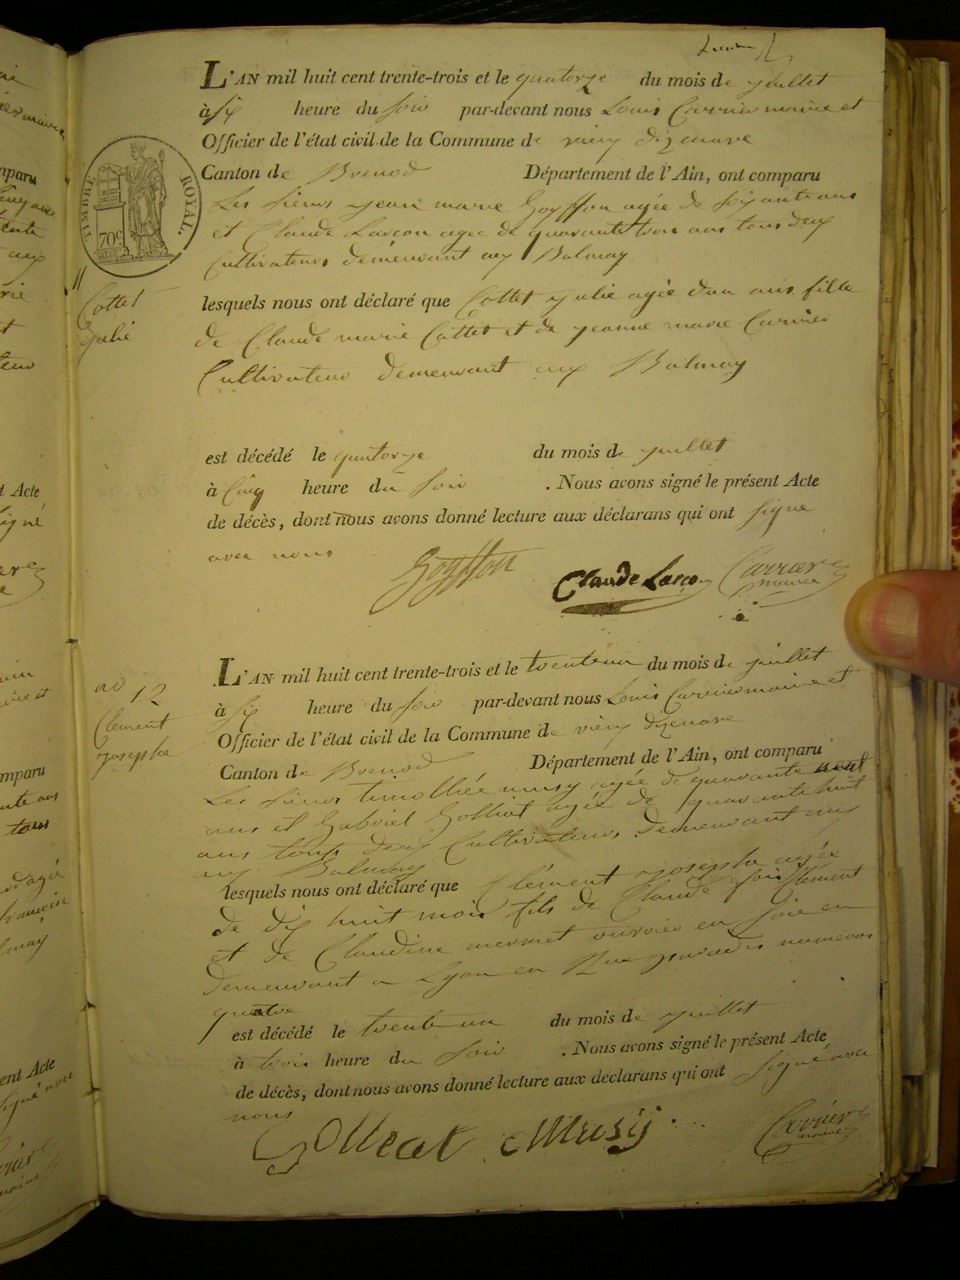 L'AN mil huit cent trente-trois et le quatorze du mois de juillet
à six heure du soir par-devant nous Louis Carrier maire et
Officier de l'état civil de la Commune de vieux dizenave
Canton de Brenod Département de l'Ain, ont comparu
TIMBRE ROYAL.
70c
Les sieurs jean marie Goyffon agée de soixante ans
et Claude Lascon agée de quarante trois ans tous deux
Cultivateurs demeurant aux Balmay
11
Cottet
julie
lesquels nous ont déclaré que Cottet julie agée d'un ans fille
de Claude marie Cottet et de jeanne marie Carrier
Cultivateurs demeurant aux Balmay
est décédé le quatorze du mois de juillet
à Cinq heure du soir . Nous avons signé le présent Acte
de décès, dont nous avons donné lecture aux déclarans qui ont signe
avec nous
Goyffon Claude Lasco Carrier
maire
L'AN mil huit cent trente-trois et le trenteun du mois de juillet
no 12
Clement
josepha
à six heure du soir par-devant nous Louis Carrier maire et
Officier de l'état civil de la Commune de vieux dizenave
Canton de Brenod Département de l'Ain, ont comparu
Les sieurs timothée musy agée de quarante neuf
ans et Gabriel Golliat agée de quarante huit
ans tous deux Cultivateurs demeurant aux
Balmay
lesquels nous ont déclaré que Clément josepha agée
de dix huit mois fils de Claude Clement
et de Claudine mermet ouvrier en soie en
demeurant a Lyon en Rue numeros
quatre
est décédé le trente un du mois de juillet
à trois heure du soir . Nous avons signé le présent Acte
de décès, dont nous avons donné lecture aux déclarans qui ont signé avec
nous
Golleat Musy Carrier
maire